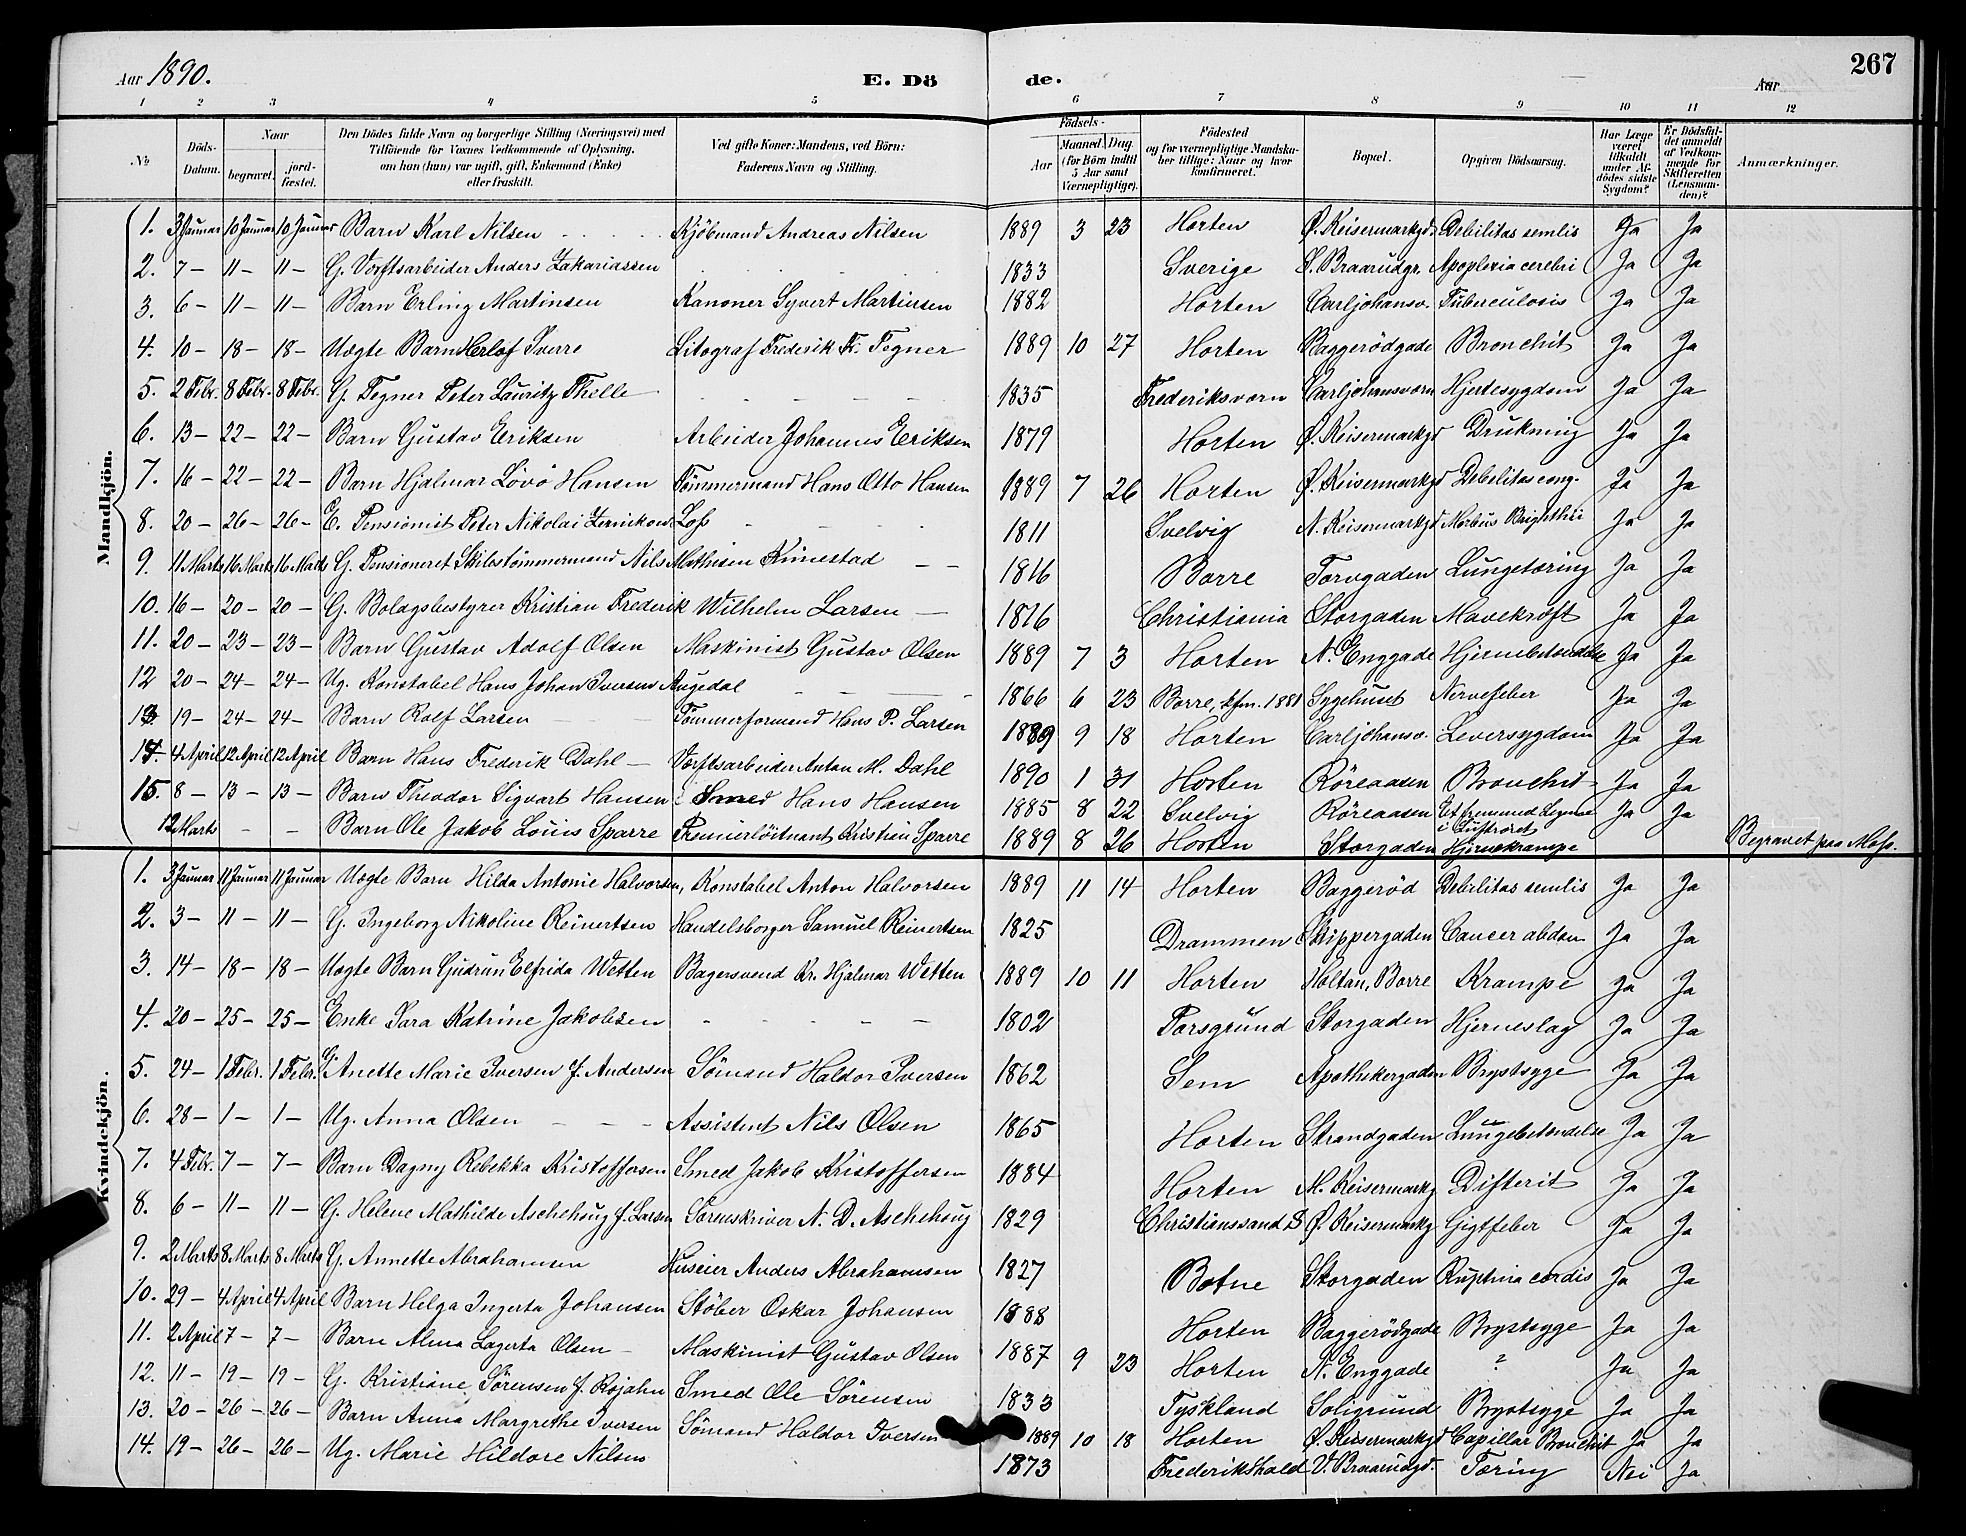 Aar 1890.
E. Dö de.
Aar
267
1 2 3 4 5 6 7 8 9 10 11 12
No
Döds-Datum.
Naar
begravet. jord-fæstet.
Den Dödes fulde Navn og borgerlige Stilling (Næringsvei) med
Tilföiende for Voxnes Vedkommende af Oplysning,
om han (hun) var ugift, gift, Enkemand (Enke)
eller fraskilt.
Ved gifte Koner: Mandens, ved Börn:
Faderens Navn og Stilling.
Födsels-
Aar Maaned Dag
(for Börn indtil
5 Aar samt
Værnepligtige).
Födested
og for værnepligtige Mandska-
ber tillige: Naar og hvor
konfirmeret.
Bopæl.
Opgiven Dödsaarsag.
Har Læge
været
tilkaldt
under Af-
dödes sidste
Sygdom?
Er Dödsfal-
det anmeldt
af Vedkom-
mende for
Skifteretten
(Lensman-
den)?
Anmærkninger.
Mandkjön.
1. 3 Januar 10 Januar 10 Januar Barn Karl Nilsen Kjöbmand Andreas Nilsen 1889 3 23 Horten Ø. Keisermarkgd. Debilitas semlis Ja Ja
2. 7 – 11 – 11 – G. Værftsarbeider Anders Zakariassen 1833 Sverige S. Braarudgr. Apoplexia cerebri Ja Ja
3. 6 – 11 – 11 – Barn Erling Martinsen Kanoner Syvert Martinsen 1882 Horten Carljohansv. Tuberculosis Ja Ja
4. 10 – 18 – 18 – Uægte Barn Herlof Iverre Litograf Frederik Fr. Tegner 1889 10 27 Horten Baggerödgade Bronchit Ja Ja
5. 2 Febr. 8 Febr. 8 Febr. G. Tegner Peter Lauritz Thelle 1835 Frederiksvorn Carljohansvorn Hjertesygdom Ja Ja
6. 13 – 22 – 22 – Barn Gustav Eriksen Arbeider Johannes Eriksen 1879 Horten Ø. Keisermarkgd Drukning Ja Ja
7. 16 – 22 – 22 – Barn Hjalmar Lövö Hansen Tömmermand Hans Otto Hansen 1889 7 26 Horten Ø. Keisermarkgd Debilitas cong. Ja Ja
8. 20 – 26 – 26 – E. Pensionist Peter Nikolai Zernikow Loss 1811 Svelvig N. Keisermarkgd Morbus Brighthii Ja Ja
9. 11 Marts 16 Marts 16 Marts G. Pensioneret Skibstömmermand Nils Mathisen Kinestad 1816 Borre Torvgaden Lungetæring Ja Ja
10. 16 – 20 – 20 – G. Bolagsbestyrer Kristian Frederik Wilhelm Larsen 1816 Christiania Storgaden Mavekræft Ja Ja
11. 20 – 23 – 23 – Barn Gustav Adolf Olsen Maskinist Gustav Olsen 1889 7 3 Horten N. Enggade Hjernebetændelse Ja Ja
12 20 – 24 – 24 – Ug. Konstabel Hans Johan Iversen Augedal 1866 6 23 Borre, kfm. 1881 Sygehuset Nervefeber Ja Ja
13 19 – 24 – 24 – Barn Rolf Larsen Tömmerformand Hans P. Larsen 1889 9 18 Horten Carljohansv. Leversygdom Ja Ja
14. 4 April 12 April 12 April Barn Hans Frederik Dahl Værftsarbeider Anton M. Dahl 1890 1 31 Horten Röreaasen Bronchit Ja Ja
15. 8 – 13 – 13 – Barn Theodor Sigvart Hansen Smed Hans Hansen 1885 8 22 Svelvig Röreaasen Et fremmed Legeme i Luftröret Ja Ja
12 Marts – – Barn Ole Jakob Louis Sparre Premierlöitnant Kristian Sparre 1889 8 26 Horten Storgaden Hjernekrampe Begravet paa Moss.
Kvindekjön.
1. 3 Januar 11 Januar 11 Januar Uægte Barn Hilda Antonie Halvorsen, Konstabel Anton Halvorsen 1889 11 14 Horten Baggeröd Debilitas semlis Ja Ja
2. 3 – 11 – 11 – G. Ingeborg Nikoline Reinertsen Handelsborger Samuel Reinertsen 1825 Drammen Skippergaden Cancer abdom Ja Ja
3. 14 – 18 – 18 – Uægte Barn Gudrun Elfrida Wetten Bagersvend Kr. Hjalmar Wetten 1889 10 11 Horten Holtan, Borre Krampe Ja Ja
4. 20 – 25 – 25 – Enke Sara Katrine Jakobsen 1802 Porsgrund Storgaden Hjerneslag Ja Ja
5. 24 – 1 Febr. 1 Febr. G. Anette Marie Iversen f. Andersen Sömand Haldor Iversen 1862 Sem Apothekergaden Brystsyge Ja Ja
6. 28 – 1 – 1 – Ug. Anna Olsen Assistent Nils Olsen 1865 Horten Strandgaden Lungebetændelse Ja Ja
7. 4 Febr. 7 – 7 – Barn Dagny Rebekka Kristoffersen Smed Jakob Kristoffersen 1884 Horten M. Keisermarkg Difterit Ja Ja
8. 6 – 11 – 11 – G. Helene Mathilde Aschehoug f. Larsen Sorenskriver N. D. Aschehoug 1829 Christianssand S Ø. Keisermarkg Gigtfeber Ja Ja
9. 2 Marts 8 Marts 8 Marts G. Annette Abrahamsen Huseier Anders Abrahamsen 1827 Botne Storgaden Ruptura cordis Ja Ja
10. 29 – 4 April 4 April Barn Helga Ingerta Johansen Stöber Oskar Johansen 1888 Horten Baggerödgade Brystsyge Ja Ja
11. 2 April 7 – 7 – Barn Alma Lagerta Olsen Maskinist Gustav Olsen 1887 9 23 Horten N. Enggade ? Ja Ja
12. 11 – 19 – 19 – G. Kristiane Sörensen f. Rojahn Smed Ole Sörensen 1833 Tyskland Soligrund Brystsyge Ja Ja
13. 20 – 26 – 26 – Barn Anna Margrethe Iversen Sömand Haldor Iversen 1889 10 18 Horten Ø. Keisermarkgd Capillar Bronchit Ja Ja
14. 19 – 26 – 26 – Ug. Marie Hildore Nilsen 1873 Frederikshald V. Braarudgd. Tæring Nei Ja